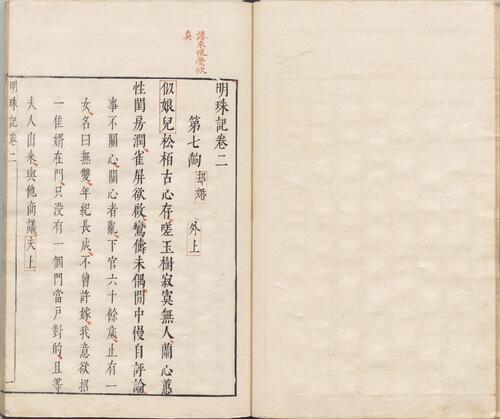 真
明珠記卷二
第七齣 却婚 外上
似娘兒松栢古心存嗟玉樹寂寞無人蘭心蕙
性閨房潤雀屏欲啟鸞儔未偶閒中慢自評論
事不關心關心者亂下官六十餘歲止有一
女名曰無雙年紀長成不曾許嫁我意欲招
一佳婿在門只没有一個門當戸對的且等
夫人出來與他商議夫上
明珠記卷二 一